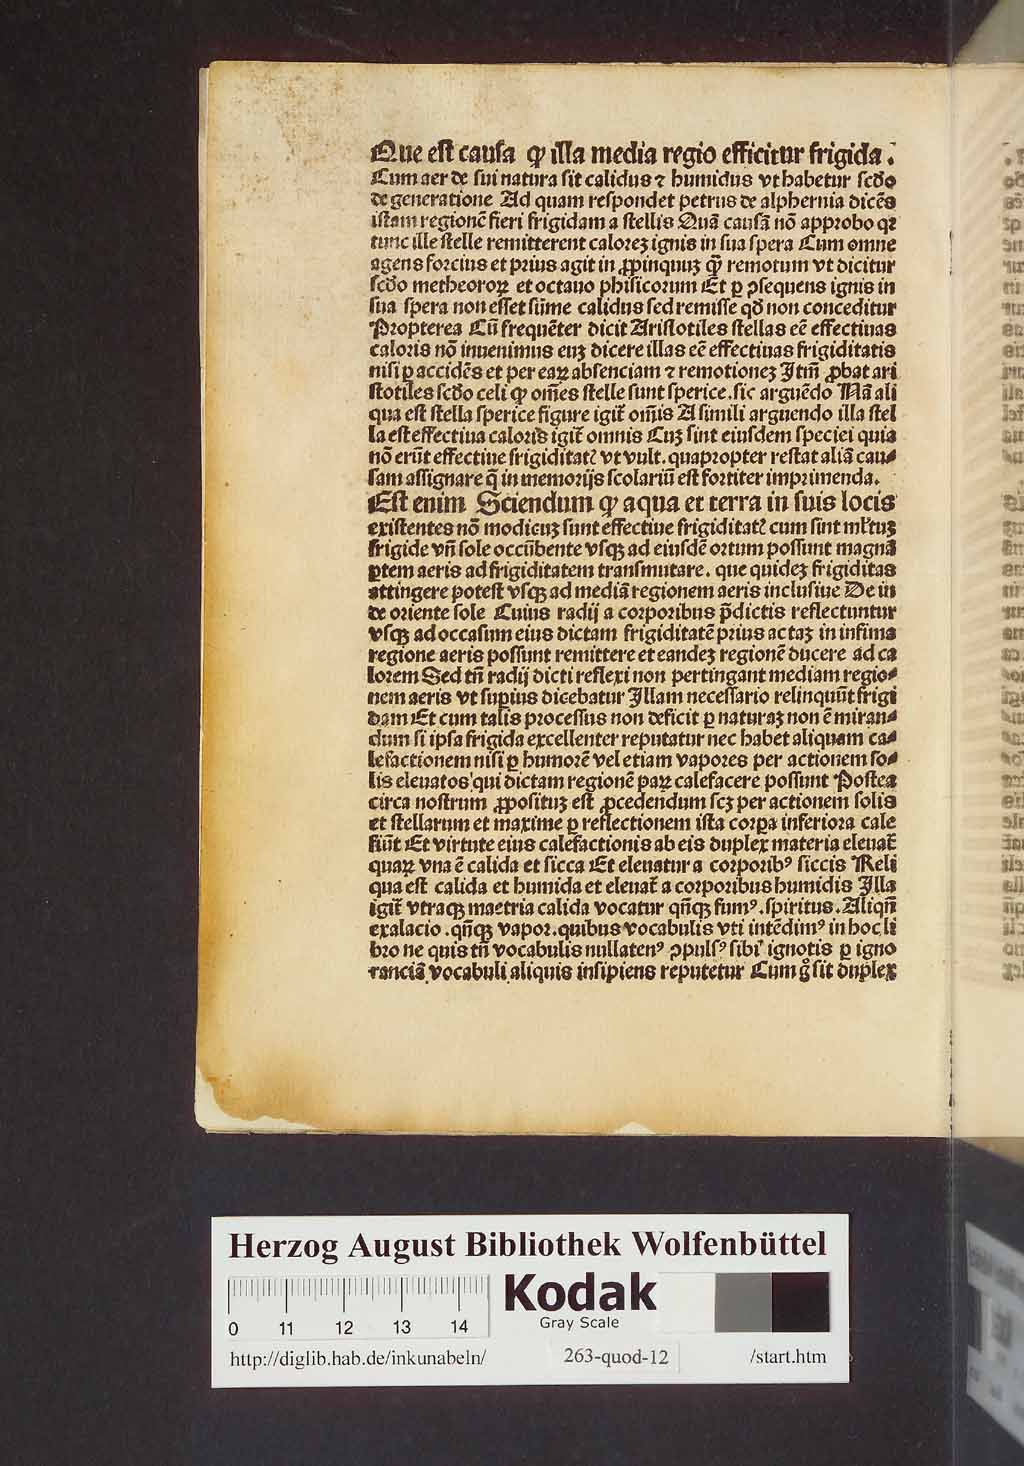 Que est causa ꝙ illa media regio efficitur frigida.
Cum aer de sui natura sit calidus ⁊ humidus vt habetur scd̄o
de generatione Ad quam respondet petrus de alphernia dicēs
istam regionē fieri frigidam a stellis Quā causā nō approbo qꝛ
tunc ille stelle remitterent calorez ignis in sua spera Cum omne
agens forcius et prius agit in ꝓpinquuz qᷓꝫ remotum vt dicitur
scd̄o metheoroꝝ et octauo phisicorum Et ꝑ ꝯsequens ignis in
sua spera non esset sūme calidus sed remisse qd̄ non conceditur
Propterea Cū frequēter dicit Aristotiles stellas eē effectiuas
caloris nō inuenimus euz dicere illas eē effectiuas frigiditatis
nisi ꝑ accidēs et per eaꝝ absenciam ⁊ remotionez Itm̄ ꝓbat ari
stotiles scd̄o celi ꝙ om̄es stelle sunt sperice. sic arguēdo Nā ali
qua est stella sperice figure igit̄ om̄is A simili arguendo illa stel
la est effectiua caloris igit̄ omnis Cuz sint eiusdem speciei quia
nō erūt effectiue frigiditatꝭ vt vult. quapropter restat aliā cau⸗
sam assignare q̄ in memorijs scolariū est fortiter imprimenda.
Est enim Sciendum ꝙ aqua et terra in suis locis
existentes nō modicuz sunt effectiue frigiditatꝭ cum sint ml̄tuz
frigide vn̄ sole occūbente vsqꝫ ad eiusdē ortum possunt magnā
ꝑtem aeris ad frigiditatem transmutare. que quidez frigiditas
attingere potest vsqꝫ ad mediā regionem aeris inclusiue De in
de oriente sole Cuius radij a corporibus p̄dictis reflectuntur
vsqꝫ ad occasum eius dictam frigiditatē prius actaz in infima
regione aeris possunt remittere et eandez regionē ducere ad ca
lorem Sed tn̄ radij dicti reflexi non pertingant mediam regio⸗
nem aeris vt supius dicebatur Illam necessario relinquūt frigi
dam Et cum talis processus non deficit ꝑ naturaz non ē miran⸗
dum si ipsa frigida excellenter reputatur nec habet aliquam ca⸗
lefactionem nisi ꝑ humorē vel etiam vapores per actionem so⸗
lis eleuatos qui dictam regionē paꝝ calefacere possunt Postea
circa nostrum ꝓposituz est ꝓcedendum scz per actionem solis
et stellarum et maxime ꝑ reflectionem ista corpa inferiora cale
fiūt Et virtute eius calefactionis ab eis duplex materia eleuat̄
quaꝝ vna ē calida et sicca Et eleuatur a corporibꝰ siccis Reli
qua est calida et humida et eleuat̄ a corporibus humidis Illa
igit̄ vtraqꝫ maetria calida vocatur qn̄qꝫ fumꝰ. spiritus. Aliqn̄
exalacio. qn̄qꝫ vapor. quibus vocabulis vti intēdimꝰ in hoc li
bro ne quis tn̄ vocabulis nullatenꝰ ꝯpulsꝰ sibi ignotis ꝑ igno
ranciā vocabuli aliquis insipiens reputetur Cum gͦ sit duplex
Herzog August Bibliothek Wolfenbüttel
Kodak
Gray Scale
0 11 12 13 14
http://diglib.hab.de/inkunabeln/ 263-quod-12 /start.htm